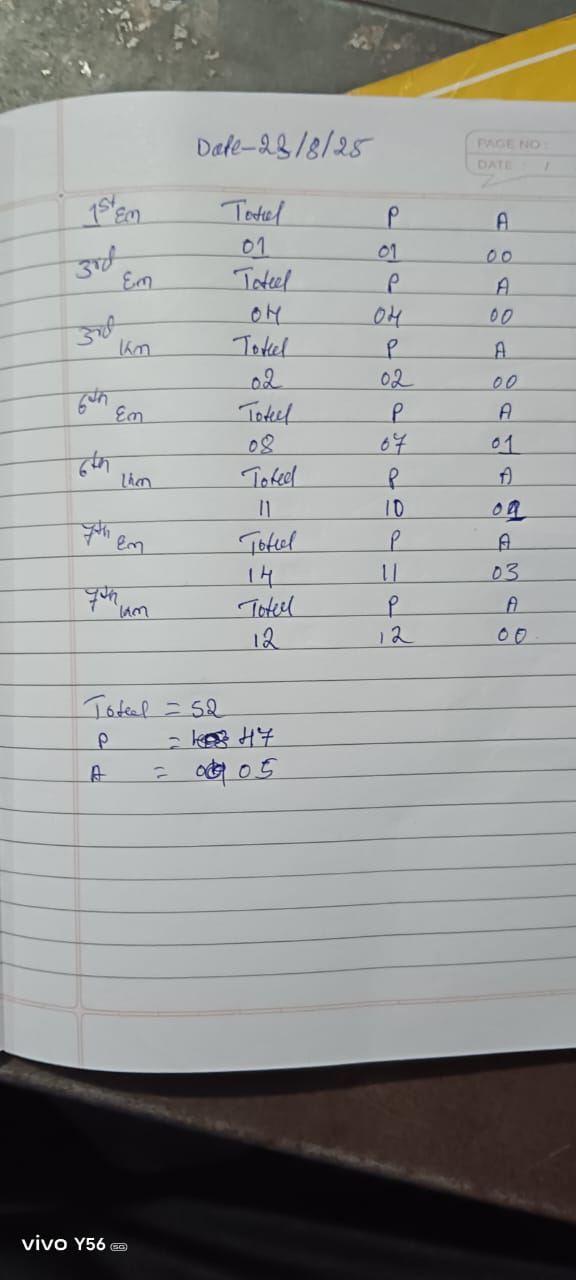 PAGE NO :
DATE : /
Date-23/8/25
1st Em Total P A
01 01 00
3rd Em Total P A
04 04 00
3rd Km Total P A
02 02 00
6th Em Total P A
08 07 01
6th Km Total P A
11 10 01
7th Em Total P A
14 11 03
7th Km Total P A
12 12 00
Total = 52
P = 47
A = 05
vivo Y56 5G